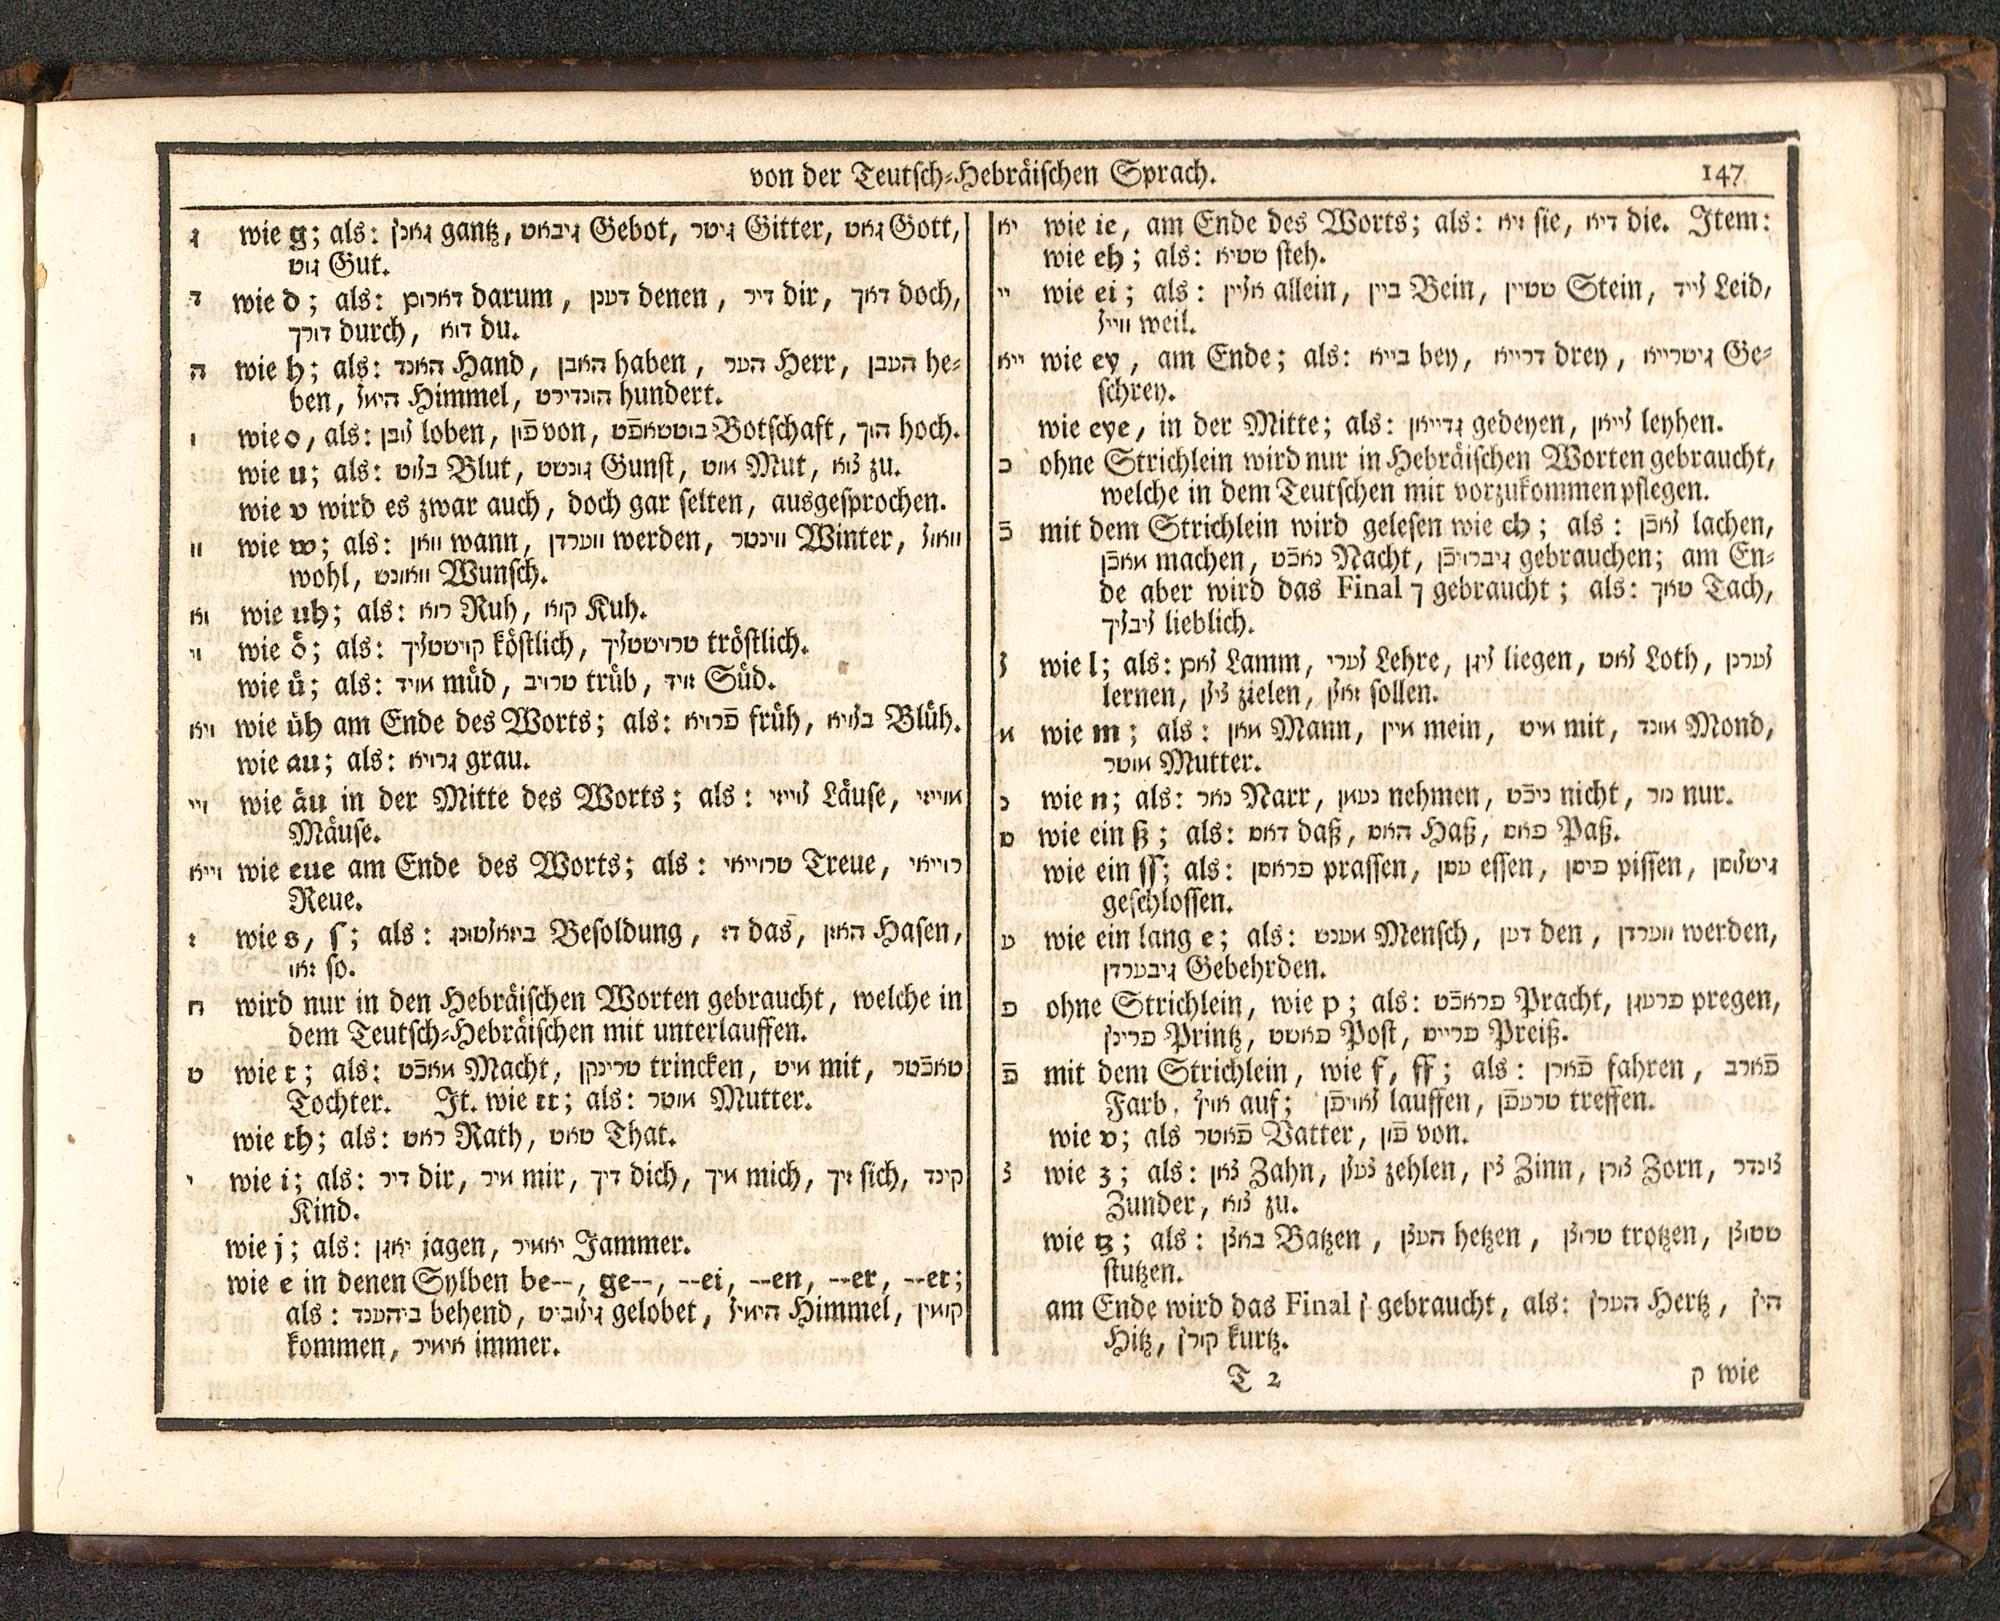 von der Teutsch-Hebräischen Sprach. 147
ג wie g; als: גאנץ gantz, גיבאט Gebot, גיטר Gitter, גאט Gott,
גוט Gut.
ד wie d; als: דארום darum, דענן denen, דיר dir, דאך doch,
דורך durch, דוא du.
ה wie h; als: האנד Hand, האבן haben, הער Herr, העבן he-
ben, הימיל Himmel, הונדירט hundert.
ו wie o, als: לובן loben, פֿון von, בוטשאפֿט Botschaft, הוך hoch.
wie u; als: בלוט Blut, גונשט Gunst, מוט Mut, צוא zu.
wie v wird es zwar auch, doch gar selten, ausgesprochen.
וו wie w; als: וואן wann, ווערדן werden, ווינטר Winter, וואול
wohl, וואונש Wunsch.
וא wie uh; als: רוא Ruh, קוא Kuh.
וי wie ö; als: קוישטליך köstlich, טרוישטליך tröstlich.
wie ü; als: מויד müd, טרויב trüb, זויד Süd.
ויא wie üh am Ende des Worts; als: פֿרויא früh, בלויא Blüh.
wie au; als: גרויא grau.
ויי wie äu in der Mitte des Worts; als: לווייזי Läuse, מווייזי
Mäuse.
וייא wie eue am Ende des Worts; als: טרוייאי Treue, רוייאי
Reue.
ז wie s, ſ; als: ביזאלטונג Besoldung, דז das, האזן Hasen,
זאו so.
ח wird nur in den Hebräischen Worten gebraucht, welche in
dem Teutsch-Hebräischen mit unterlauffen.
ט wie t; als: מאכֿט Macht, טרינקן trincken, מיט mit, טאכֿטר
Tochter. It. wie tt; als: מוטר Mutter.
wie th; als: ראט Rath, טאט That.
י wie i; als: דיר dir, מיר mir, דיך dich, מיך mich, זיך sich, קינד
Kind.
wie j; als: יאגן jagen, יאמיר Jammer.
wie e in denen Sylben be--, ge--, --ei, --en, --er, --et;
als: ביהענד behend, גילוביט gelobet, הימיל Himmel, קומין
kommen, אימיר immer.
יא wie ie, am Ende des Worts; als: זיא sie, דיא die. Item:
wie eh; als: שטיא steh.
יי wie ei; als: אליין allein, ביין Bein, שטיין Stein, לייד Leid,
ווייל weil.
ייא wie ey, am Ende; als: בייא bey, דרייא drey, גישרייא Ge-
schrey.
wie eye, in der Mitte; als: גדייאן gedeyen, לייאן leyhen.
כ ohne Strichlein wird nur in Hebräischen Worten gebraucht,
welche in dem Teutschen mit vorzukommen pflegen.
כֿ mit dem Strichlein wird gelesen wie ch; als: לאכֿן lachen,
מאכֿן machen, נאכֿט Nacht, גיברויכֿן gebrauchen; am En-
de aber wird das Final ך gebraucht; als: טאך Tach,
ליבליך lieblich.
ל wie l; als: לאם Lamm, לערי Lehre, ליגן liegen, לאט Loth, לערנן
lernen, צילן zielen, זאלן sollen.
מ wie m; als: מאן Mann, מיין mein, מיט mit, מונד Mond,
מוטר Mutter.
נ wie n; als: נאר Narr, נעמן nehmen, ניכֿט nicht, נור nur.
ס wie ein ß; als: דאס daß, האס Haß, פאס Paß.
wie ein ſſ; als: פראסן prassen, עסן essen, פיסן pissen, גישלוסן
geschlossen.
ע wie ein lang e; als: מענש Mensch, דען den, ווערדן werden,
גיבערדן Gebehrden.
פ ohne Strichlein, wie p; als: פראכֿט Pracht, פרעגן pregen,
פרינץ Printz, פאשט Post, פרייס Preiß.
פֿ mit dem Strichlein, wie f, ff; als: פֿארן fahren, פֿארב
Farb, אויף auf; לאויפֿן lauffen, טרעפֿן treffen.
wie v; als פֿאטר Vatter, פֿון von.
צ wie z; als: צאן Zahn, צעלן zehlen, צין Zinn, צורן Zorn, צונדר
Zunder, צוא zu.
wie tz; als: באצן Batzen, העצן hetzen, טרוצן trotzen, שטוצן
stutzen.
am Ende wird das Final ץ gebraucht, als: הערץ Hertz, היץ
Hitz, קורץ kurtz.
T 2 ק wie